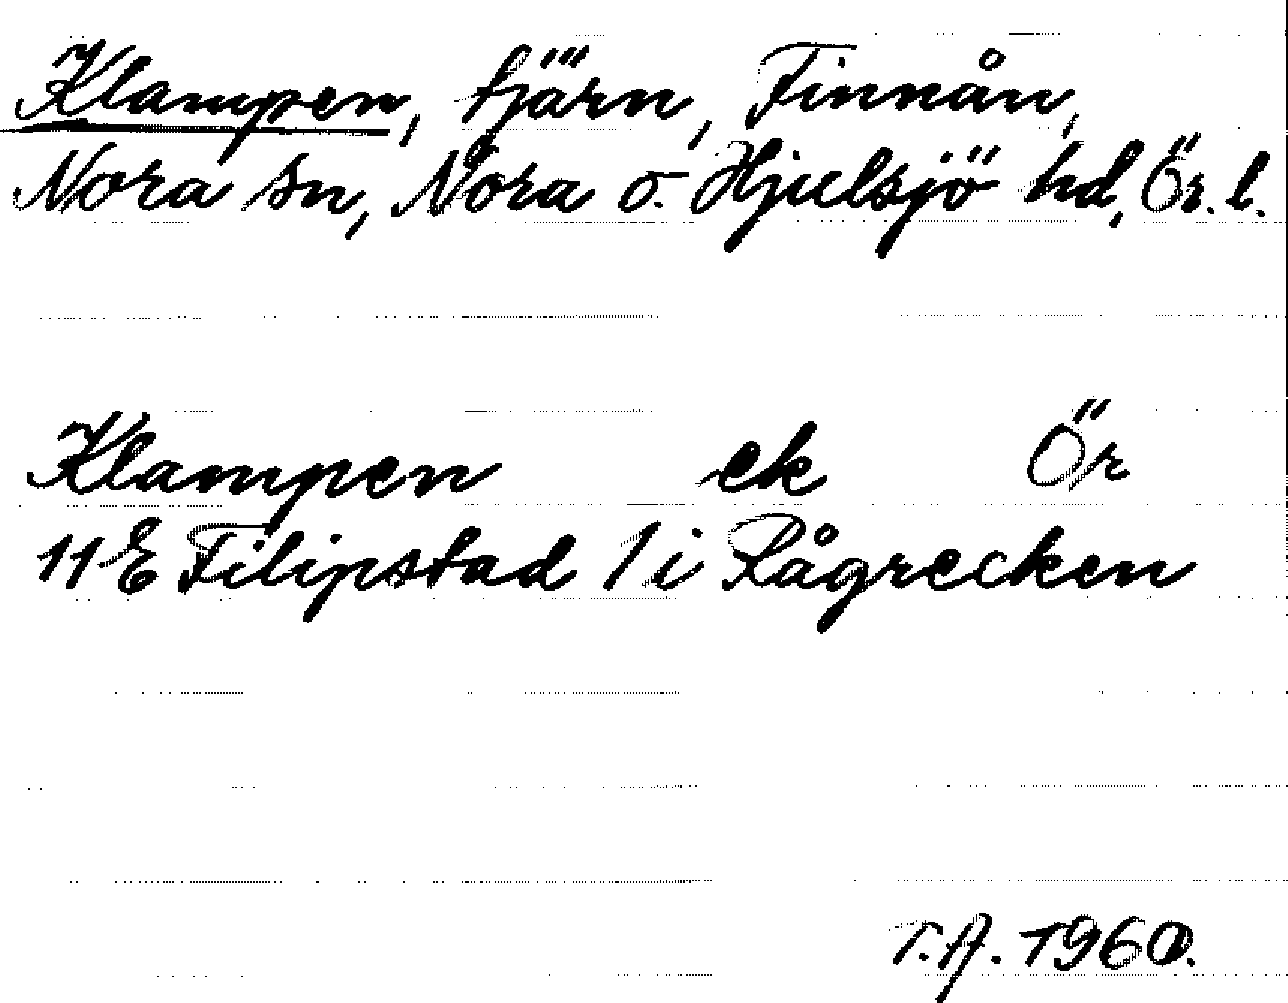 Klampen, tjärn, Finnån,
Nora sn, Nora o. Hjulsjö hd, Ör. l.
Klampen ek Ör
11 E Filipstad 1 i Rågrecken
T.A. 1960.